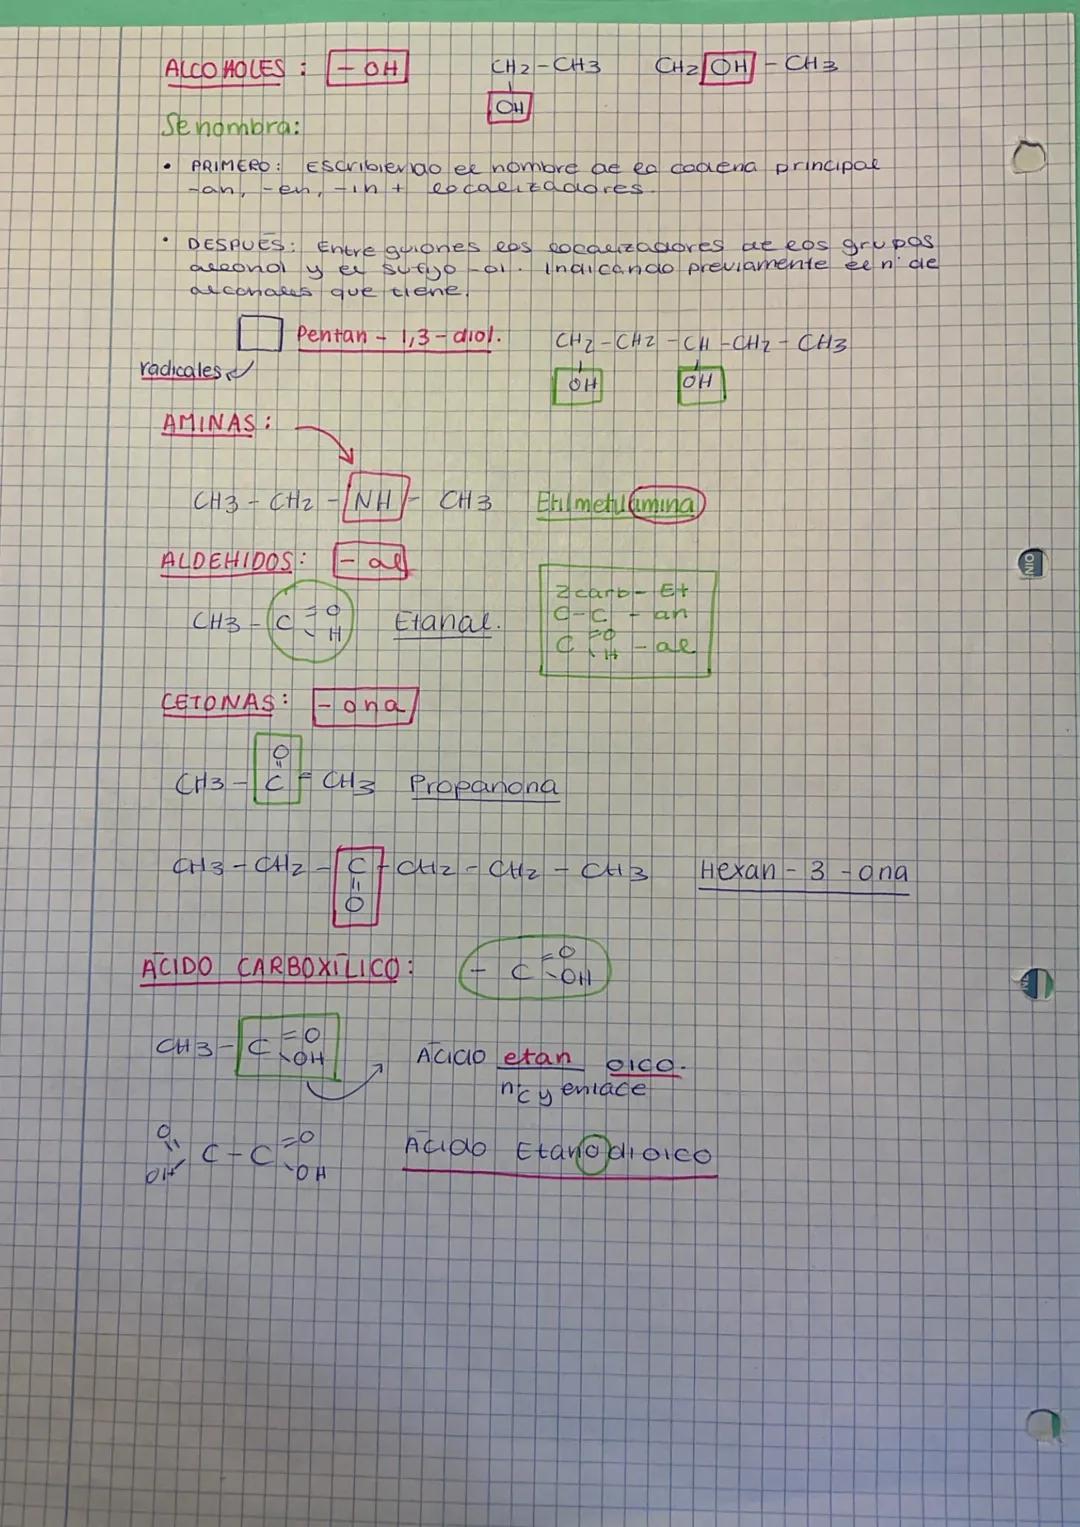 ALCOHOLES : - OH CH2 - CH3 CH2 OH - CH3
OH
Se nombra:
• PRIMERO: Escribiendo el nombre de la cadena principal
-an, -en, -in + localizadores.
• DESPUÉS: Entre guiones los localizadores de los grupos
alcohol y el sufijo -ol. Indicando previamente el nº de
alcoholes que tiene.
Pentan - 1,3 - diol. CH2 - CH2 - CH - CH2 - CH3
radicales OH OH
AMINAS:
CH3 - CH2 - NH - CH3 Etilmetilamina
ALDEHIDOS: - al
CH3 - C =O H Etanal.
2 carb - Et
C-C - an
C =O H - al
CETONAS: - ona
O
CH3 - C - CH3 Propanona
CH3 - CH2 - C - CH2 - CH2 - CH3 Hexan - 3 - ona
O
ÁCIDO CARBOXÍLICO: - C =O OH
CH3 - C =O OH Ácido etan oico.
nºC y enlace
O OH C - C =O OH Ácido Etanodioico
NIO